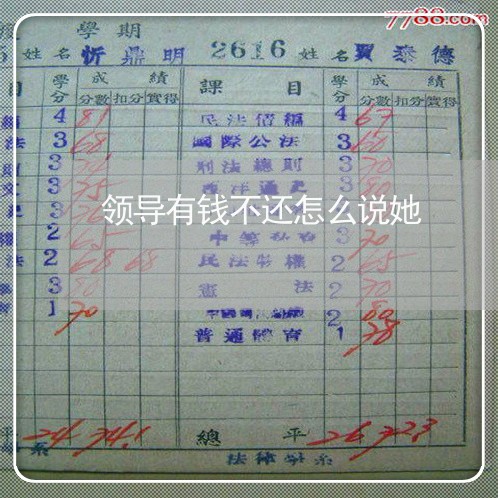 7788.com
學期
姓名 忻鼎明 2616 姓名 賈泰德
目 學分 成績 課目 學分 成績
分數 扣分 實得 分數 扣分 實得
4 81 民法債編 4 67
法 3 68 國際公法 3 60
3 刑法總則 3 70
3 75 西洋通史 3 80
领导有钱不还怎么说她
2 65 3 70
法 2 68 68 民法物權 2 65
3 80 憲法 2 70
1 70 2 80
普通體育 1 78
平 24 74.1 總平 26 72.3
系 法律學系